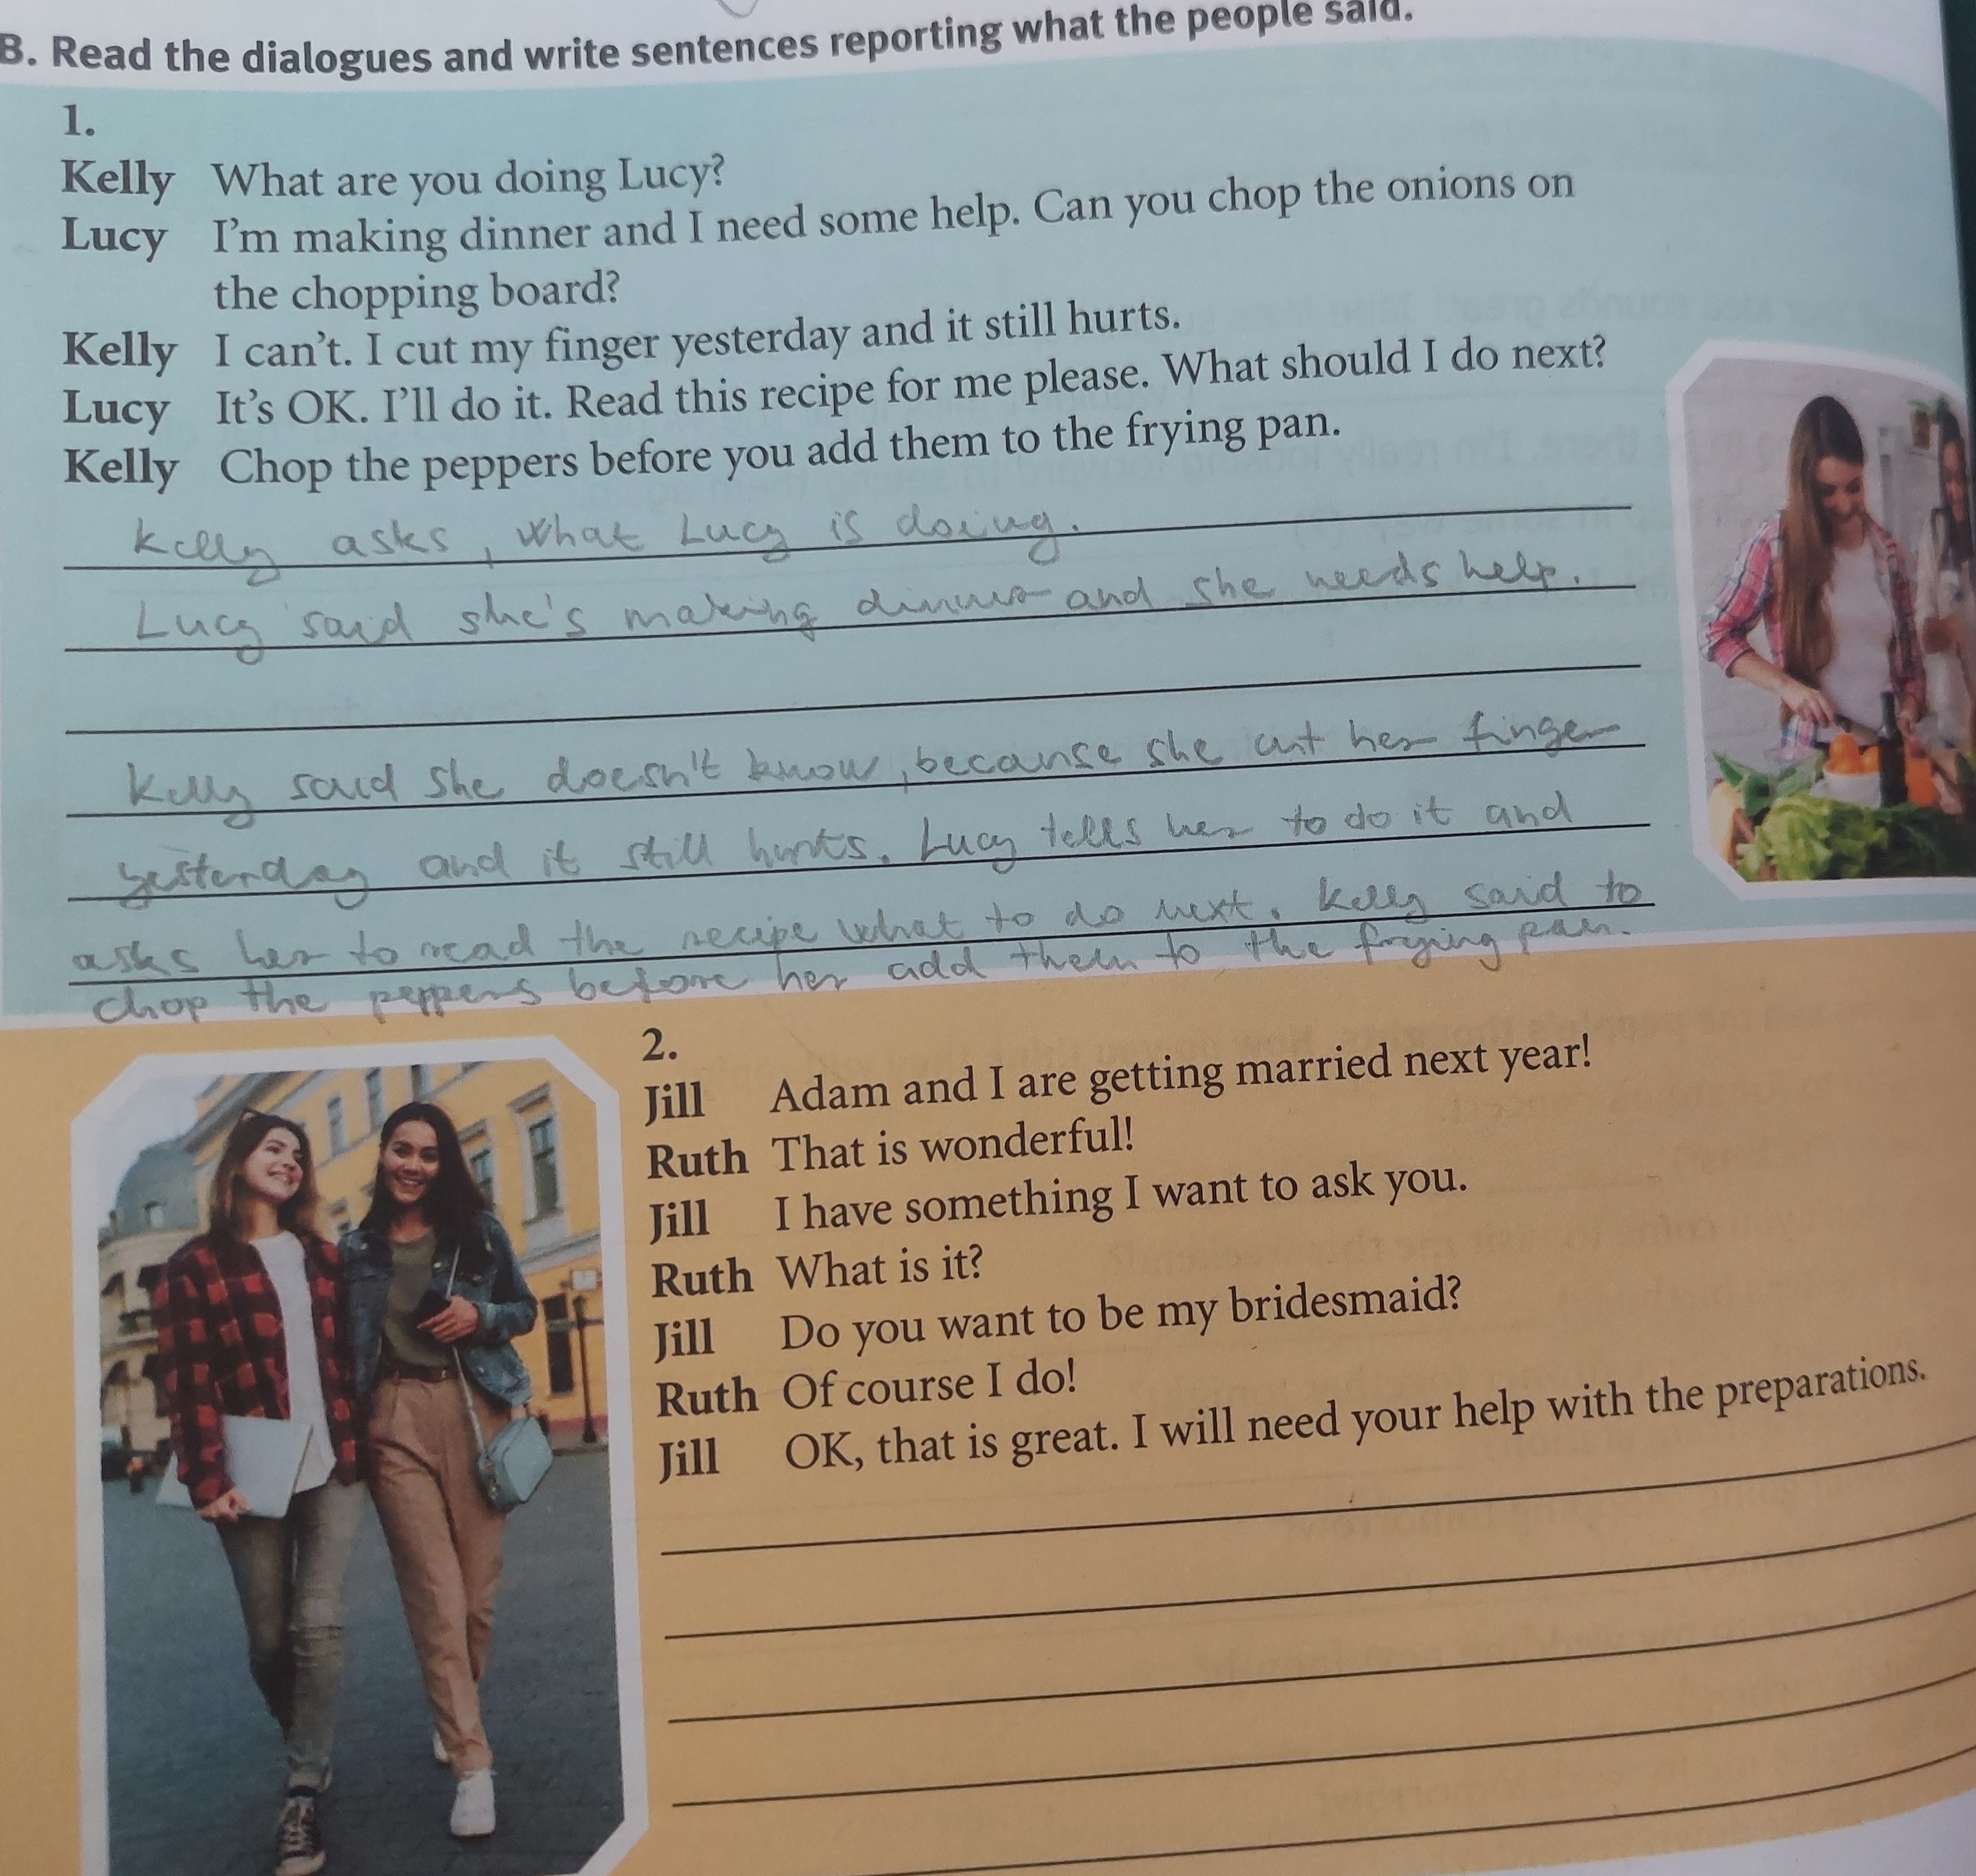 B. Read the dialogues and write sentences reporting what the people said.
1.
Kelly What are you doing Lucy?
Lucy I'm making dinner and I need some help. Can you chop the onions on
the chopping board?
Kelly I can't. I cut my finger yesterday and it still hurts.
Lucy It's OK. I'll do it. Read this recipe for me please. What should I do next?
Kelly Chop the peppers before you add them to the frying pan.
Kelly asks, what Lucy is doing.
Lucy said she's making dinner and she needs help.
Kelly said she doesn't know, because she cut her finger
yesterday and it still hurts. Lucy tells her to do it and
asks her to read the recipe what to do next. Kelly said to
chop the peppers before her add them to the frying pan.
2.
Jill Adam and I are getting married next year!
Ruth That is wonderful!
Jill I have something I want to ask you.
Ruth What is it?
Jill Do you want to be my bridesmaid?
Ruth Of course I do!
Jill OK, that is great. I will need your help with the preparations.